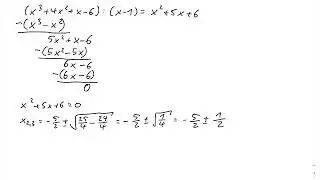 (x³+4x²+x-6) : (x-1) = x²+5x+6
-(x³-x²)
5x²+x-6
-(5x²-5x)
6x-6
-(6x-6)
0
x²+5x+6=0
x₂,₃ = -5/2 ± √(25/4 - 24/4) = -5/2 ± √(1/4) = -5/2 ± 1/2